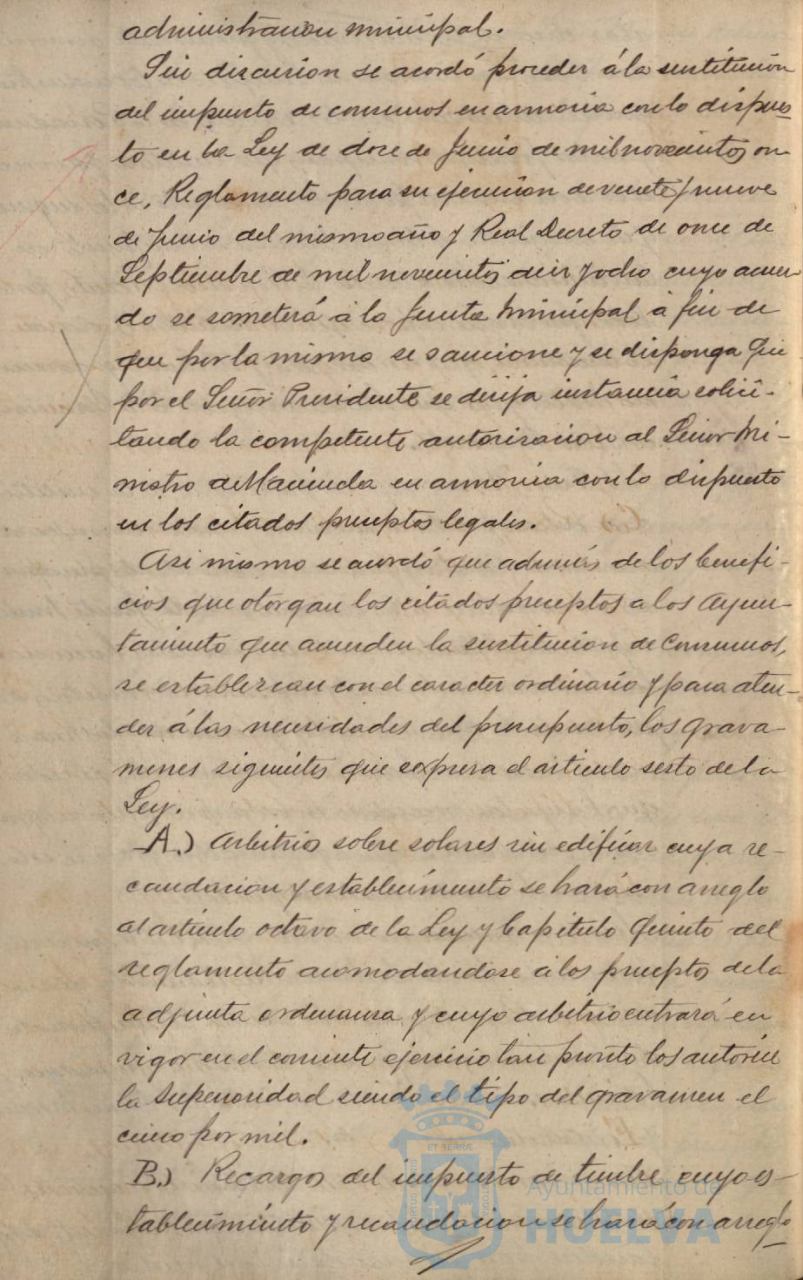 administracion municipal.
Sin discusion se acordó proceder á la sustitución
del impuesto de consumos en armonia con lo dispues
to en la Ley de doce de Junio de mil novecientos on
ce, Reglamento para su ejecucion de veinte y nueve
de Junio del mismo año y Real Decreto de once de
Septiembre de mil novecientos diez y ocho cuyo acuer-
do se someterá á la Junta Municipal a fin de
que por la misma se sancione y se disponga que
por el Señor Presidente se dirija instancia solici-
tando la competente autorizacion al Señor Mi-
nistro de Hacienda en armonia con lo dispuesto
en los citados preceptos legales.
Asi mismo se acordó que además de los benefi-
cios que otorgan los citados preceptos a los Ayun-
tamiento que acuerden la sustitucion de Consumos,
se establezcan con el caracter ordinario y para aten-
der á las necesidades del presupuesto, los grava-
menes siguientes que expresa el articulo sesto de la
Ley.
A.) Arbitrios sobre solares sin edificar cuya re-
caudacion y establecimiento se hará con arreglo
al artículo octavo de la Ley y Capitulo Quinto del
reglamento acomodandose á los preceptos de la
adjunta ordenanza y cuyo arbitrio entrará en
vigor en el corriente ejercicio tan pronto los autorice
la Superioridad siendo el tipo del gravamen el
cinco por mil.
B.) Recargos del impuesto de timbre cuyo es-
tablecimiento y recaudacion se hará con arreglo
ET TERRE
Ayuntamiento de
HUELVA